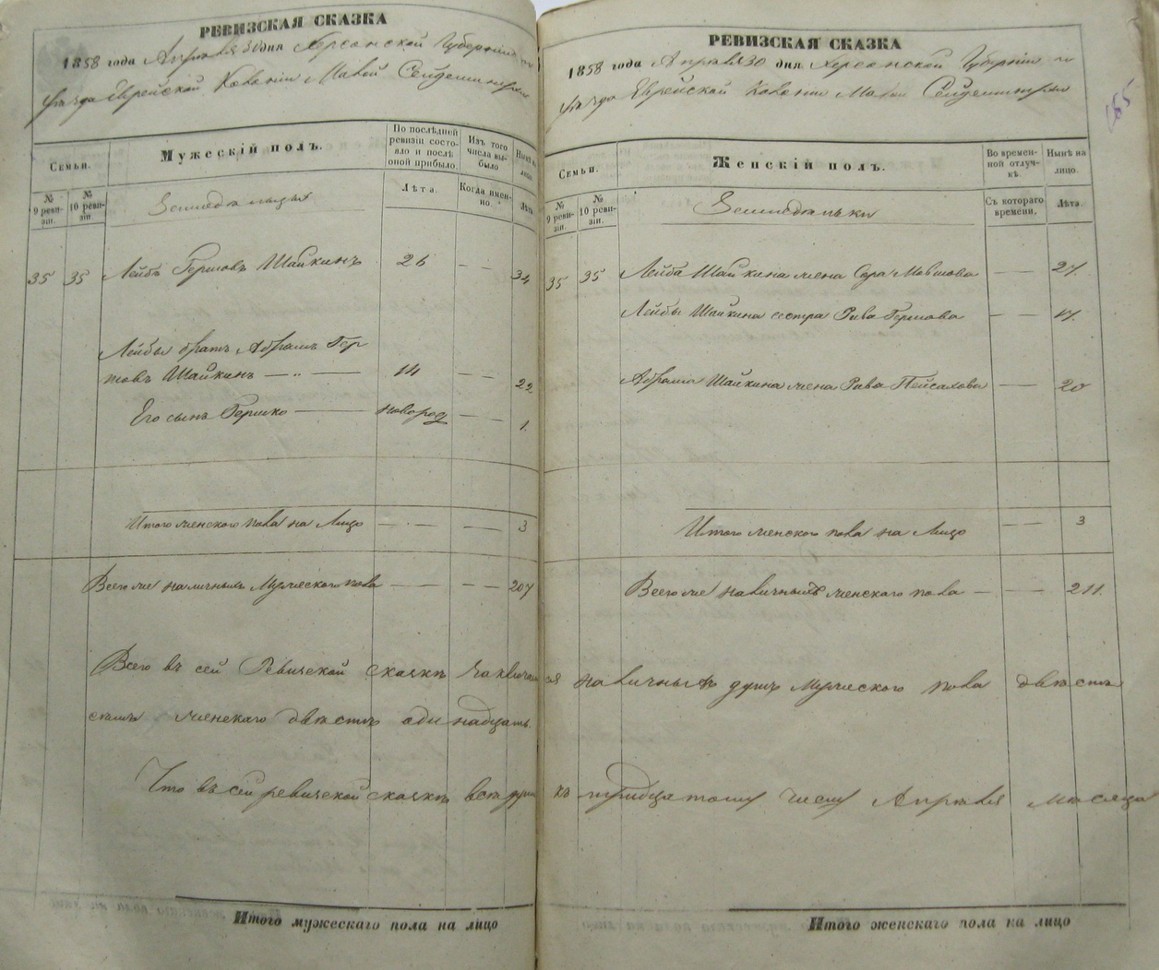 РЕВИЗСКАЯ СКАЗКА
1858 года Апреля 30 дня Херсонской Губерніи
уезда Еврейской Колоніи Малой Сейдеминухи
Семьи.
Мужескій полъ.
По послѣдней ревизіи состояло и послѣ оной прибыло.
Изъ того числа выбыло
Нынѣ на лицо.
№ 9 ревизіи.
№ 10 ревизіи.
Лѣта.
Когда именно.
Лѣта
35 35 Лейба Гершовъ Шайкинъ 26 — — 34
Лейбы братъ Абрамъ Гер
шовъ Шайкинъ — „ — 14 — — 22
Его сынъ Гершко — новород — — 1.
Итого женского пола на Лицо — — — 3
Всего же наличныхъ Мужеского пола — — — 207
РЕВИЗСКАЯ СКАЗКА
1858 года Апреля 30 дня Херсонской Губерніи
уезда Еврейской Колоніи Малой Сейдеминухи
265
Семьи.
Женскій полъ.
Во временной отлучкѣ.
Нынѣ на лицо.
№ 9 ревизіи.
№ 10 ревизіи.
Съ котораго времени.
Лѣта.
35 35 Лейба Шайкина жена Сора Мовшова — 27.
Лейбы Шайкина сестра Рива Гершова — — 17.
Абрама Шайкина жена Рива Пейсахова — 20
Итого женского пола на Лицо — 3
Всего же наличныхъ женского пола — — 211.
Всего въ сей Ревижской сказкѣ наличныхъ душъ Мужеского пола двѣсти
семь женскаго двѣсти одинадцать.
Что въ сей ревижской сказкѣ всѣ души къ тридцатому числу Апрѣля Мѣсяца
Итого мужескаго пола на лицо
Итого женскаго пола на лицо